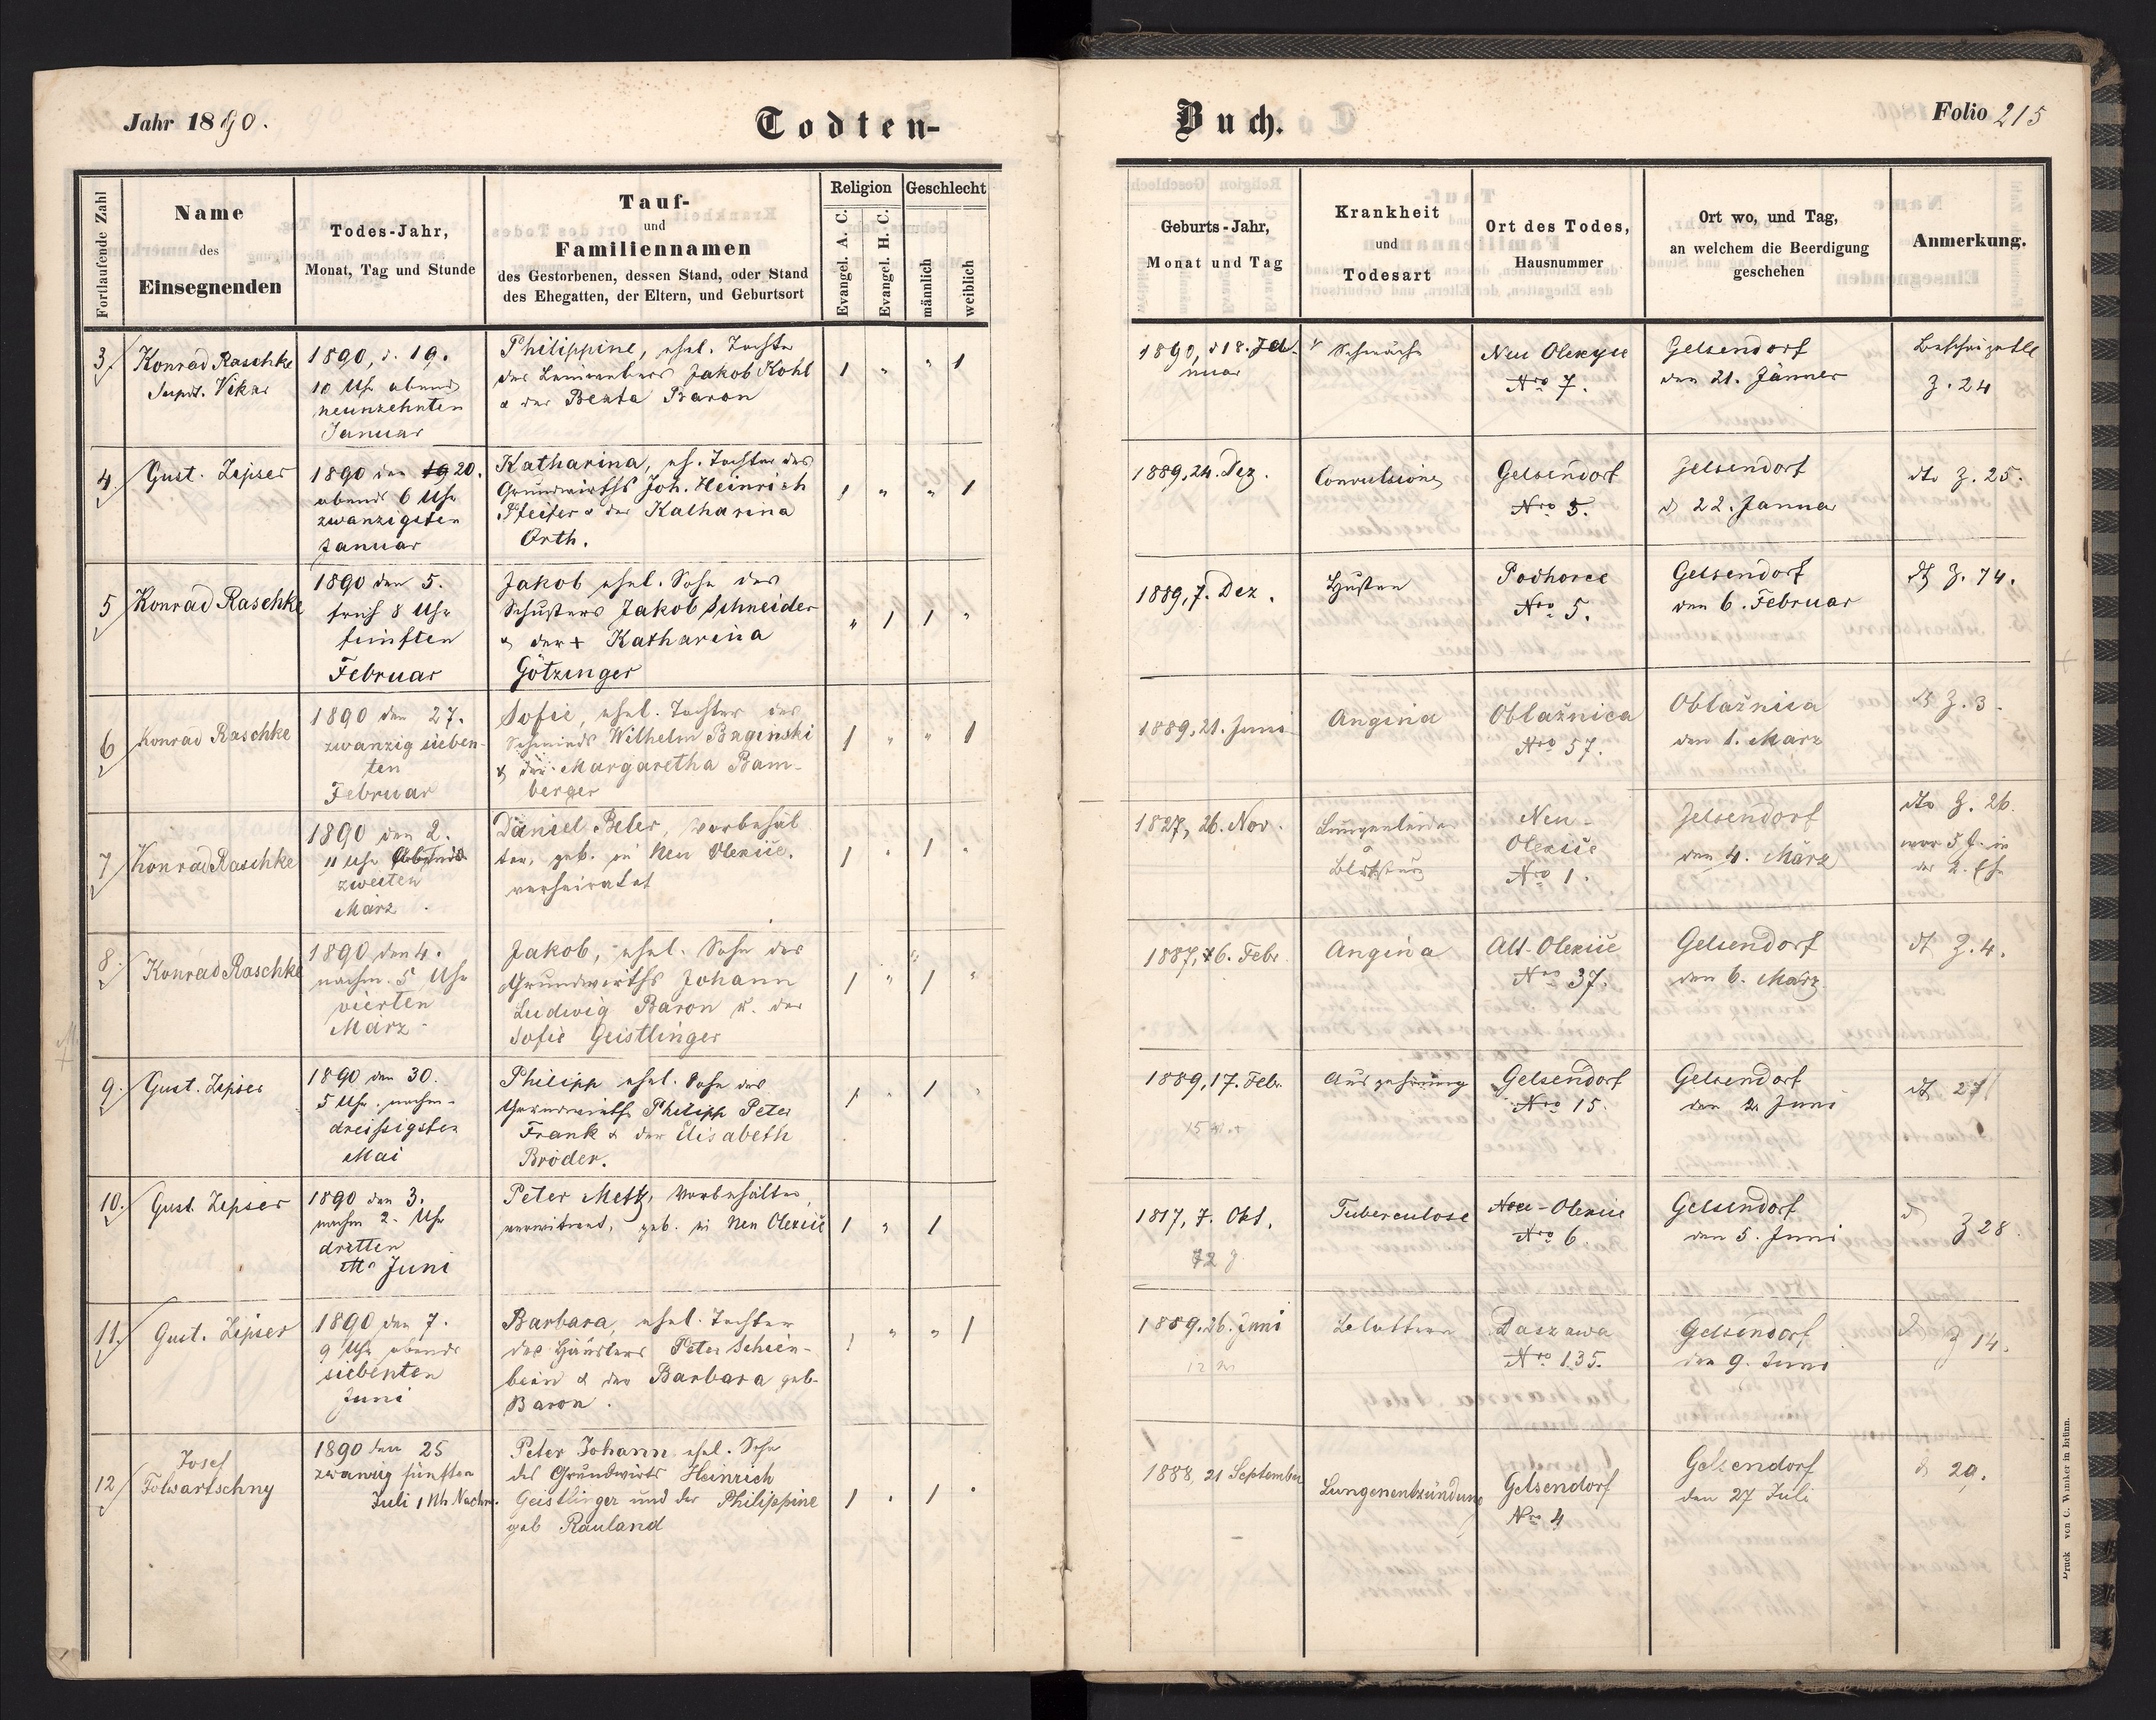 Jahr 1890.
Todten-
Fortlaufende Zahl
Name
des
Einsegnenden
Todes-Jahr,
Monat, Tag und Stunde
Tauf-
und
Familiennamen
des Gestorbenen, dessen Stand, oder Stand
des Ehegatten, der Eltern, und Geburtsort
Religion
Evangel. A. C.
Evangel. H. C.
Geschlecht
männlich
weiblich
Buch.
Folio 215
Geburts-Jahr,
Monat und Tag
Krankheit
und
Todesart
Ort des Todes,
Hausnummer
Ort wo, und Tag,
an welchem die Beerdigung
geschehen
Anmerkung.
3
Konrad Raschke
Vikar
1890, d. 19.
10 Uhr abends
neunzehnten
Januar
Philippine, ehel. Tochter
des Leinwebers Jakob Kohl
& der Beata Baron
1 " " 1
1890, d 18. Ja-
nuar
Schwäche
Neu Olexyce
Nro 7.
Gelsendorf
den 21. Jänner
Z. 24
4.
Gust. Zipser
1890 den 19 20.
abends 6 Uhr
zwanzigsten
Januar
Katharina, eh. Tochter des
Grundwirths Joh. Heinrich
Pfeifer & der Katharina
Orth.
1 " " 1
1889, 24. Dez.
Convulsionen
Gelsendorf
Nro 5.
Gelsendorf
d 22. Januar
dto Z. 25.
5
Konrad Raschke
1890 den 5.
früh 8 Uhr
fünften
Februar
Jakob ehel. Sohn des
Schusters Jakob Schneider
& der + Katharina
Götzinger
" 1 1 "
1889, 7. Dez.
Husten
Podhorce
Nro 5.
Gelsendorf
den 6. Februar
dto Z. 74.
6
Konrad Raschke
1890 den 27.
zwanzig sieben-
ten
Februar
Sofie, ehel. Tochter des
Schmieds Wilhelm Baginski
& der Margaretha Bam-
berger
1 " " 1
1889, 21. Juni
Angina
Oblaźnica
Nro 57.
Oblaźnica
den 1. März
dto Z. 3.
7
Konrad Raschke
1890 den 2.
11 Uhr
zweiten
März
Daniel Beler, Vorbehäl
ter, geb. in Neu Olexiie.
verheiratet
1 " 1 "
1827, 26. Nov.
Lungenleiden
Blutsturz
Neu-
Olexiie
Nro 1.
Gelsendorf
den 4. März
dto Z. 26.
war 5 J. in
der 2. Ehe
8
Konrad Raschke
1890 den 4.
nachm. 5 Uhr
vierten
März
Jakob, ehel. Sohn des
Grundwirths Johann
Ludwig Baron u. der
Sofie Geistlinger
1 " 1 "
1887, 6. Febr.
Angina
Alt-Olexiie
Nro 37.
Gelsendorf
den 6. März
dt Z. 4.
9.
Gust. Zipser
1890 den 30.
5 Uhr nachm-
dreissigsten
Mai
Philipp ehel. Sohn des
Grundwirths Philipp Peter
Frank & der Elisabeth
Bröder.
1 " 1 "
1889, 17. Febr.
15
Auszehrung
Gelsendorf
Nro 15.
Gelsendorf
den 2. Juni
dt 27
10.
Gust. Zipser
1890 den 3.
nachm 2. Uhr
dritten
Juni
Peter Metz, Vorbehälter,
verwitwet, geb. in Neu Olexiie
1 " 1
1817, 7. Okt.
72 J.
Tuberculose
Neu-Olexiie
Nro 6
Gelsendorf
den 5. Juni
d Z 28.
11.
Gust. Zipser
1890 den 7.
9 Uhr abends
siebenten
Juni
Barbara, ehel. Tochter
des Häuslers Peter Schien-
bein & der Barbara geb.
Baron.
1 " " 1
1889. 26. Juni
12
Blattern
Daszawa
Nro 135.
Gelsendorf
den 9. Juni
d Z 14.
12
Josef
Folwartschny
1890 den 25
zwanzig fünften
Juli 1 Uh Nachm.
Peter Johann ehel. Sohn
des Grundwirts Heinrich
Geistlinger und der Philippine
geb Rauland
1 " 1 "
1888, 21 September
Lungenentzündung
Gelsendorf
Nro 4
Gelsendorf
den 27 Juli
d 29.
Druck von C. Winiker in Brünn.